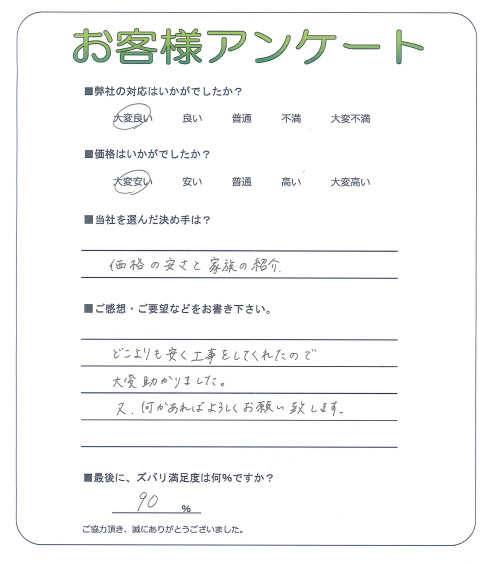 お客様アンケート
■弊社の対応はいかがでしたか?
大変良い 良い 普通 不満 大変不満
■価格はいかがでしたか?
大変安い 安い 普通 高い 大変高い
■当社を選んだ決め手は?
価格の安さと家族の紹介.
■ご感想・ご要望などをお書き下さい。
どこよりも安く工事をしてくれたので
大変助かりました。
又、何かあればよろしくお願い致します。
■最後に、ズバリ満足度は何%ですか?
90 %
ご協力頂き、誠にありがとうございました。